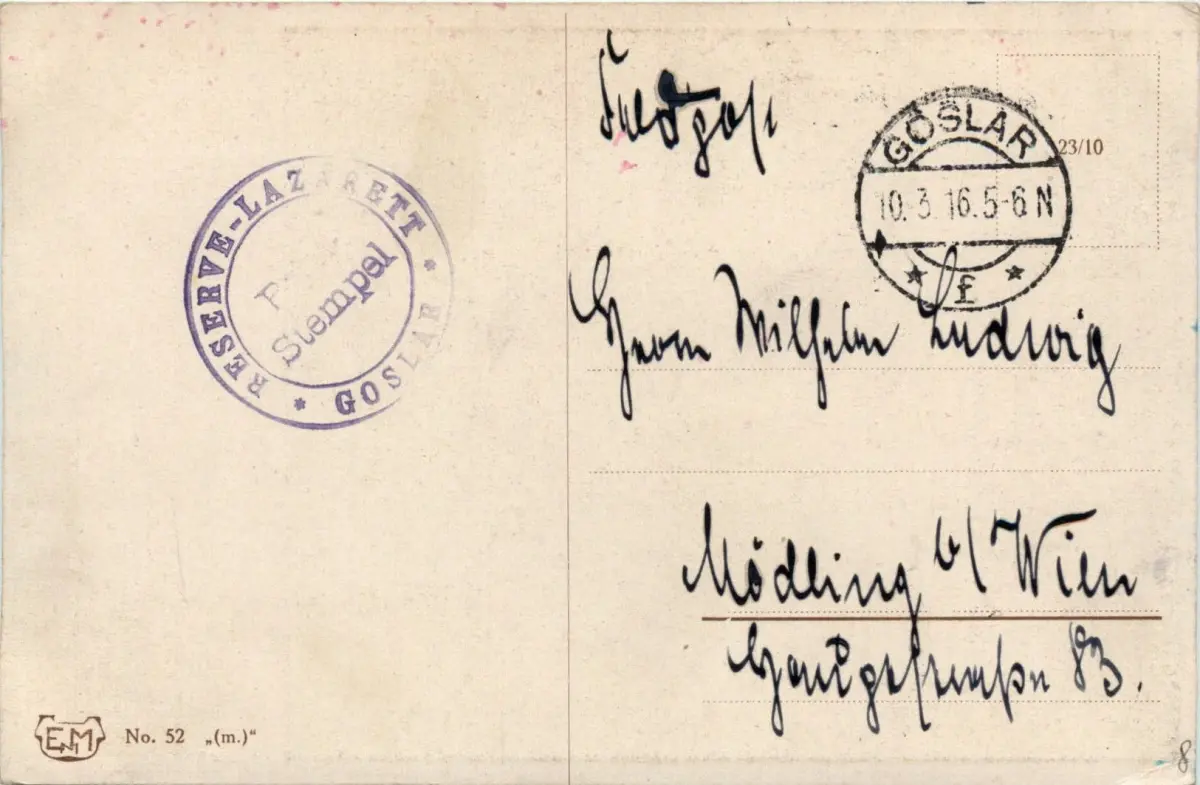 Feldpost
GOSLAR
10.3.16.5-6N
f
23/10
RESERVE-LAZARETT
Stempel
* GOSLAR *
Herrn Wilhelm Ludwig
Mödling b/Wien
Hauptstraße 83.
ENM No. 52 „(m.)“
8